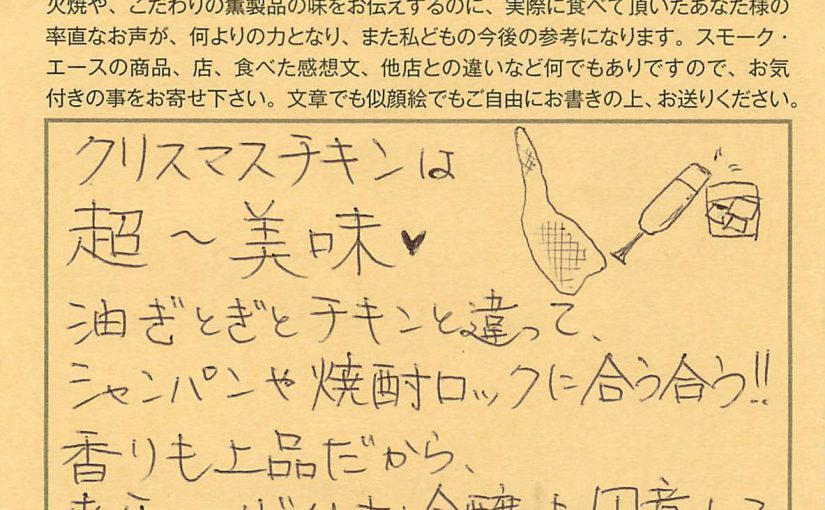 火焼や、こだわりの薫製品の味をお伝えするのに、実際に食べて頂いたあなた様の
率直なお声が、何よりの力となり、また私どもの今後の参考になります。スモーク・
エースの商品、店、食べた感想文、他店との違いなど何でもありですので、お気
付きの事をお寄せ下さい。文章でも似顔絵でもご自由にお書きの上、お送りください。
クリスマスチキンは
超〜美味♥
油ぎとぎとチキンと違って、
シャンパンや焼酎ロックに合う合う!!
香りも上品だから、